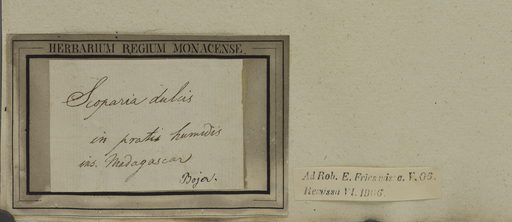 HERBARIUM REGIUM MONACENSE.
Scoparia dulcis
in pratis humidis
ins. Madagascar
Bojer.
Ad Rob. E. Fries mis: a. V. 06.
Remssa VI. 1906.